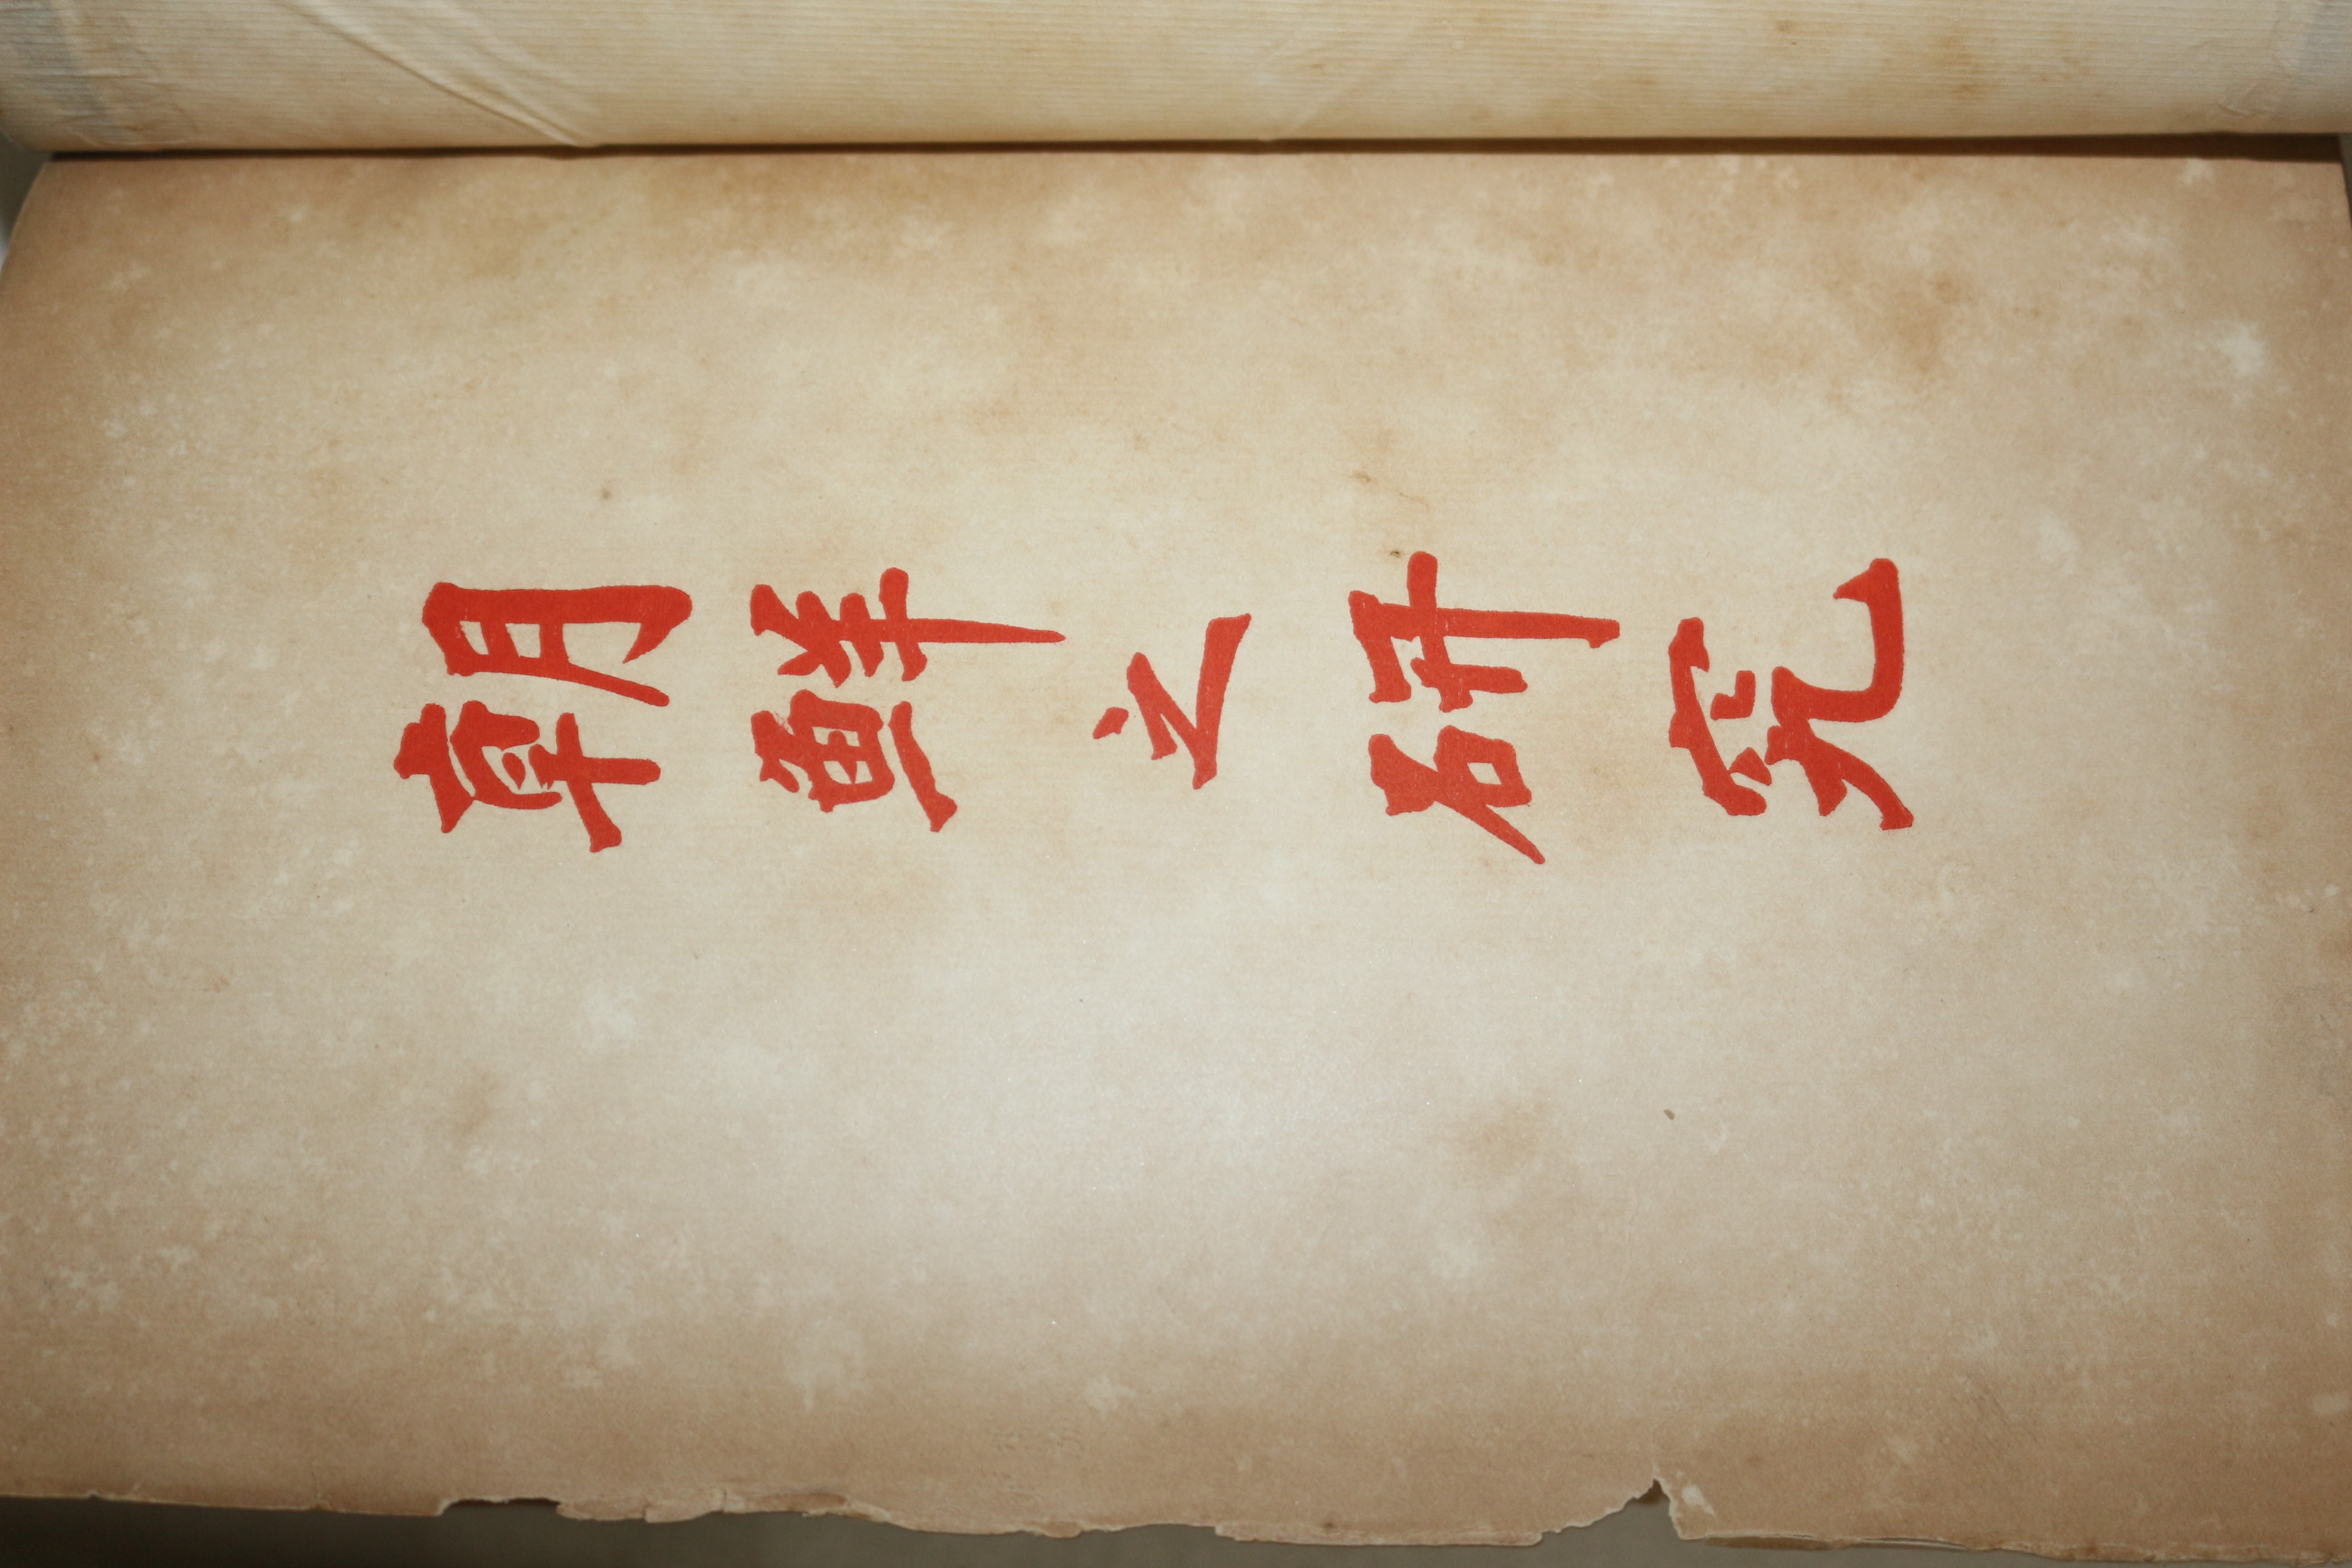 朝鮮之研究